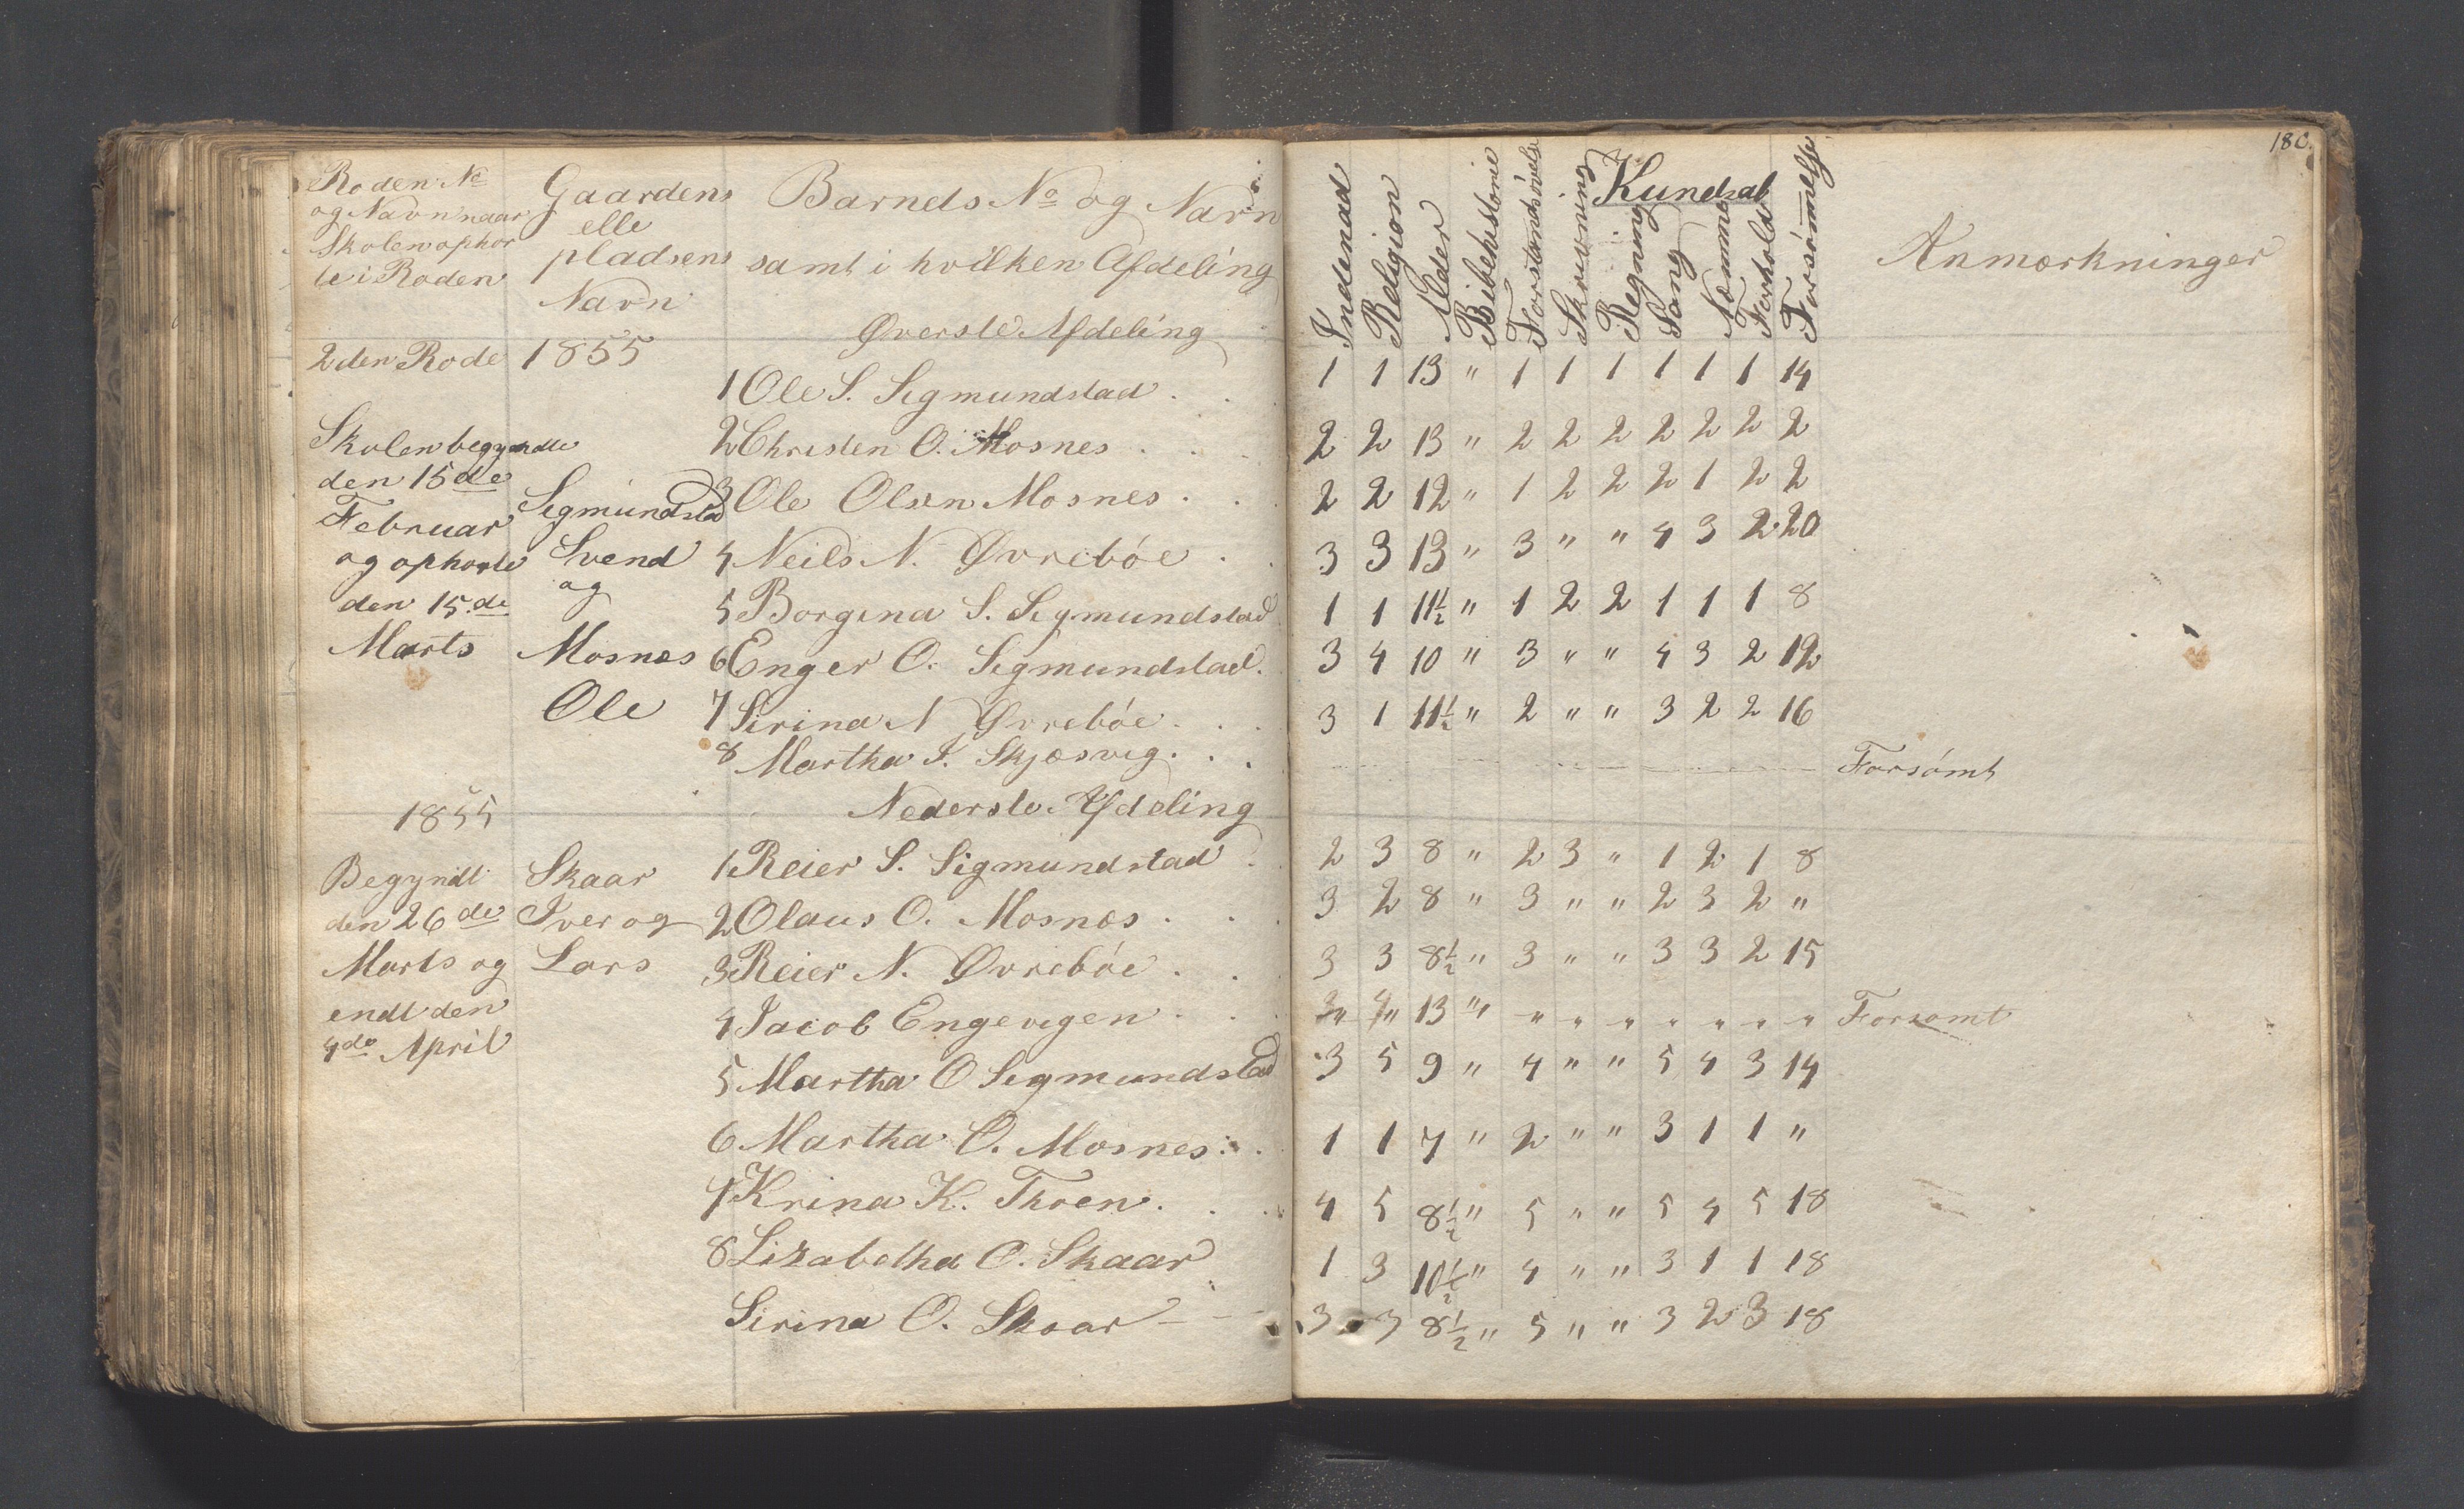 180.
Roden No
og Navn naar
Skolen ophør
te i Roden
Gaardens
elle
pladsens
Navn
Barnets No og Navn
samt i hvilken Afdeling
Øverste Afdeling
Indenad
Religion
Alder
Bibelhistorie
Forstandsövelse
Skrivning
Regning
Sang
Nemme
Forhold
Forsömmelse
Kundsab
Anmærkninger
2den Rode 1855
Skolen begyndte
den 15de
Februar
og ophorte
den 15.de
Marts
Sigmundstad
Svend
og
Mosnes
Ole
1 Ole S. Sigmundstad . . 1 1 13 " 1 1 1 1 1 1 14
2 Christen O. Mosnes . . 2 2 13 " 2 2 2 2 2 2 2
3 Ole Olsen Mosnes . . 2 2 12 " 1 2 2 2 1 2 2
4 Neils N. Øvreböe . . 3 3 13 " 3 " " 4 3 2 20
5 Borgina S. Sigmundstad 1 1 11½ " 1 2 2 1 1 1 8
6 Enger O. Sigmundstad. 3 4 10 " 3 " " 4 3 2 12
7 Sirina N Øvreböe . . 3 1 11½ " 2 " " 3 2 2 16
8 Martha I. Skjæsvig . . . Forsömt
Nederste Afdeling
1855
Begyndt
den 26de
Marts og
endt den
4de April
Skaar
Iver og
Lars
1 Reier S. Sigmundstad . 2 3 8 " 2 3 " 1 2 1 8
2 Olaus O. Mosnæs . . 3 2 8 " 3 " " 2 3 2 "
3 Reier N. Øvreböe . . 3 3 8½ " 3 " " 3 3 2 15
4 Jacob Engevigen . . " " 13 " " " " " " " " Forsomt
5 Martha O Sigmundstad 3 5 9 " 4 " " 5 4 3 14
6 Martha O. Mosnes . . 1 1 7 " 2 " " 3 1 1 "
7 Krina K. Thoen . . . 4 5 8½ " 5 " " 5 4 5 18
8 Lisabetha O. Skaar 1 3 10½ " 4 " " 3 1 1 18
Sirina O. Skaar - - 3 3 8½ " 5 " " 3 2 3 18